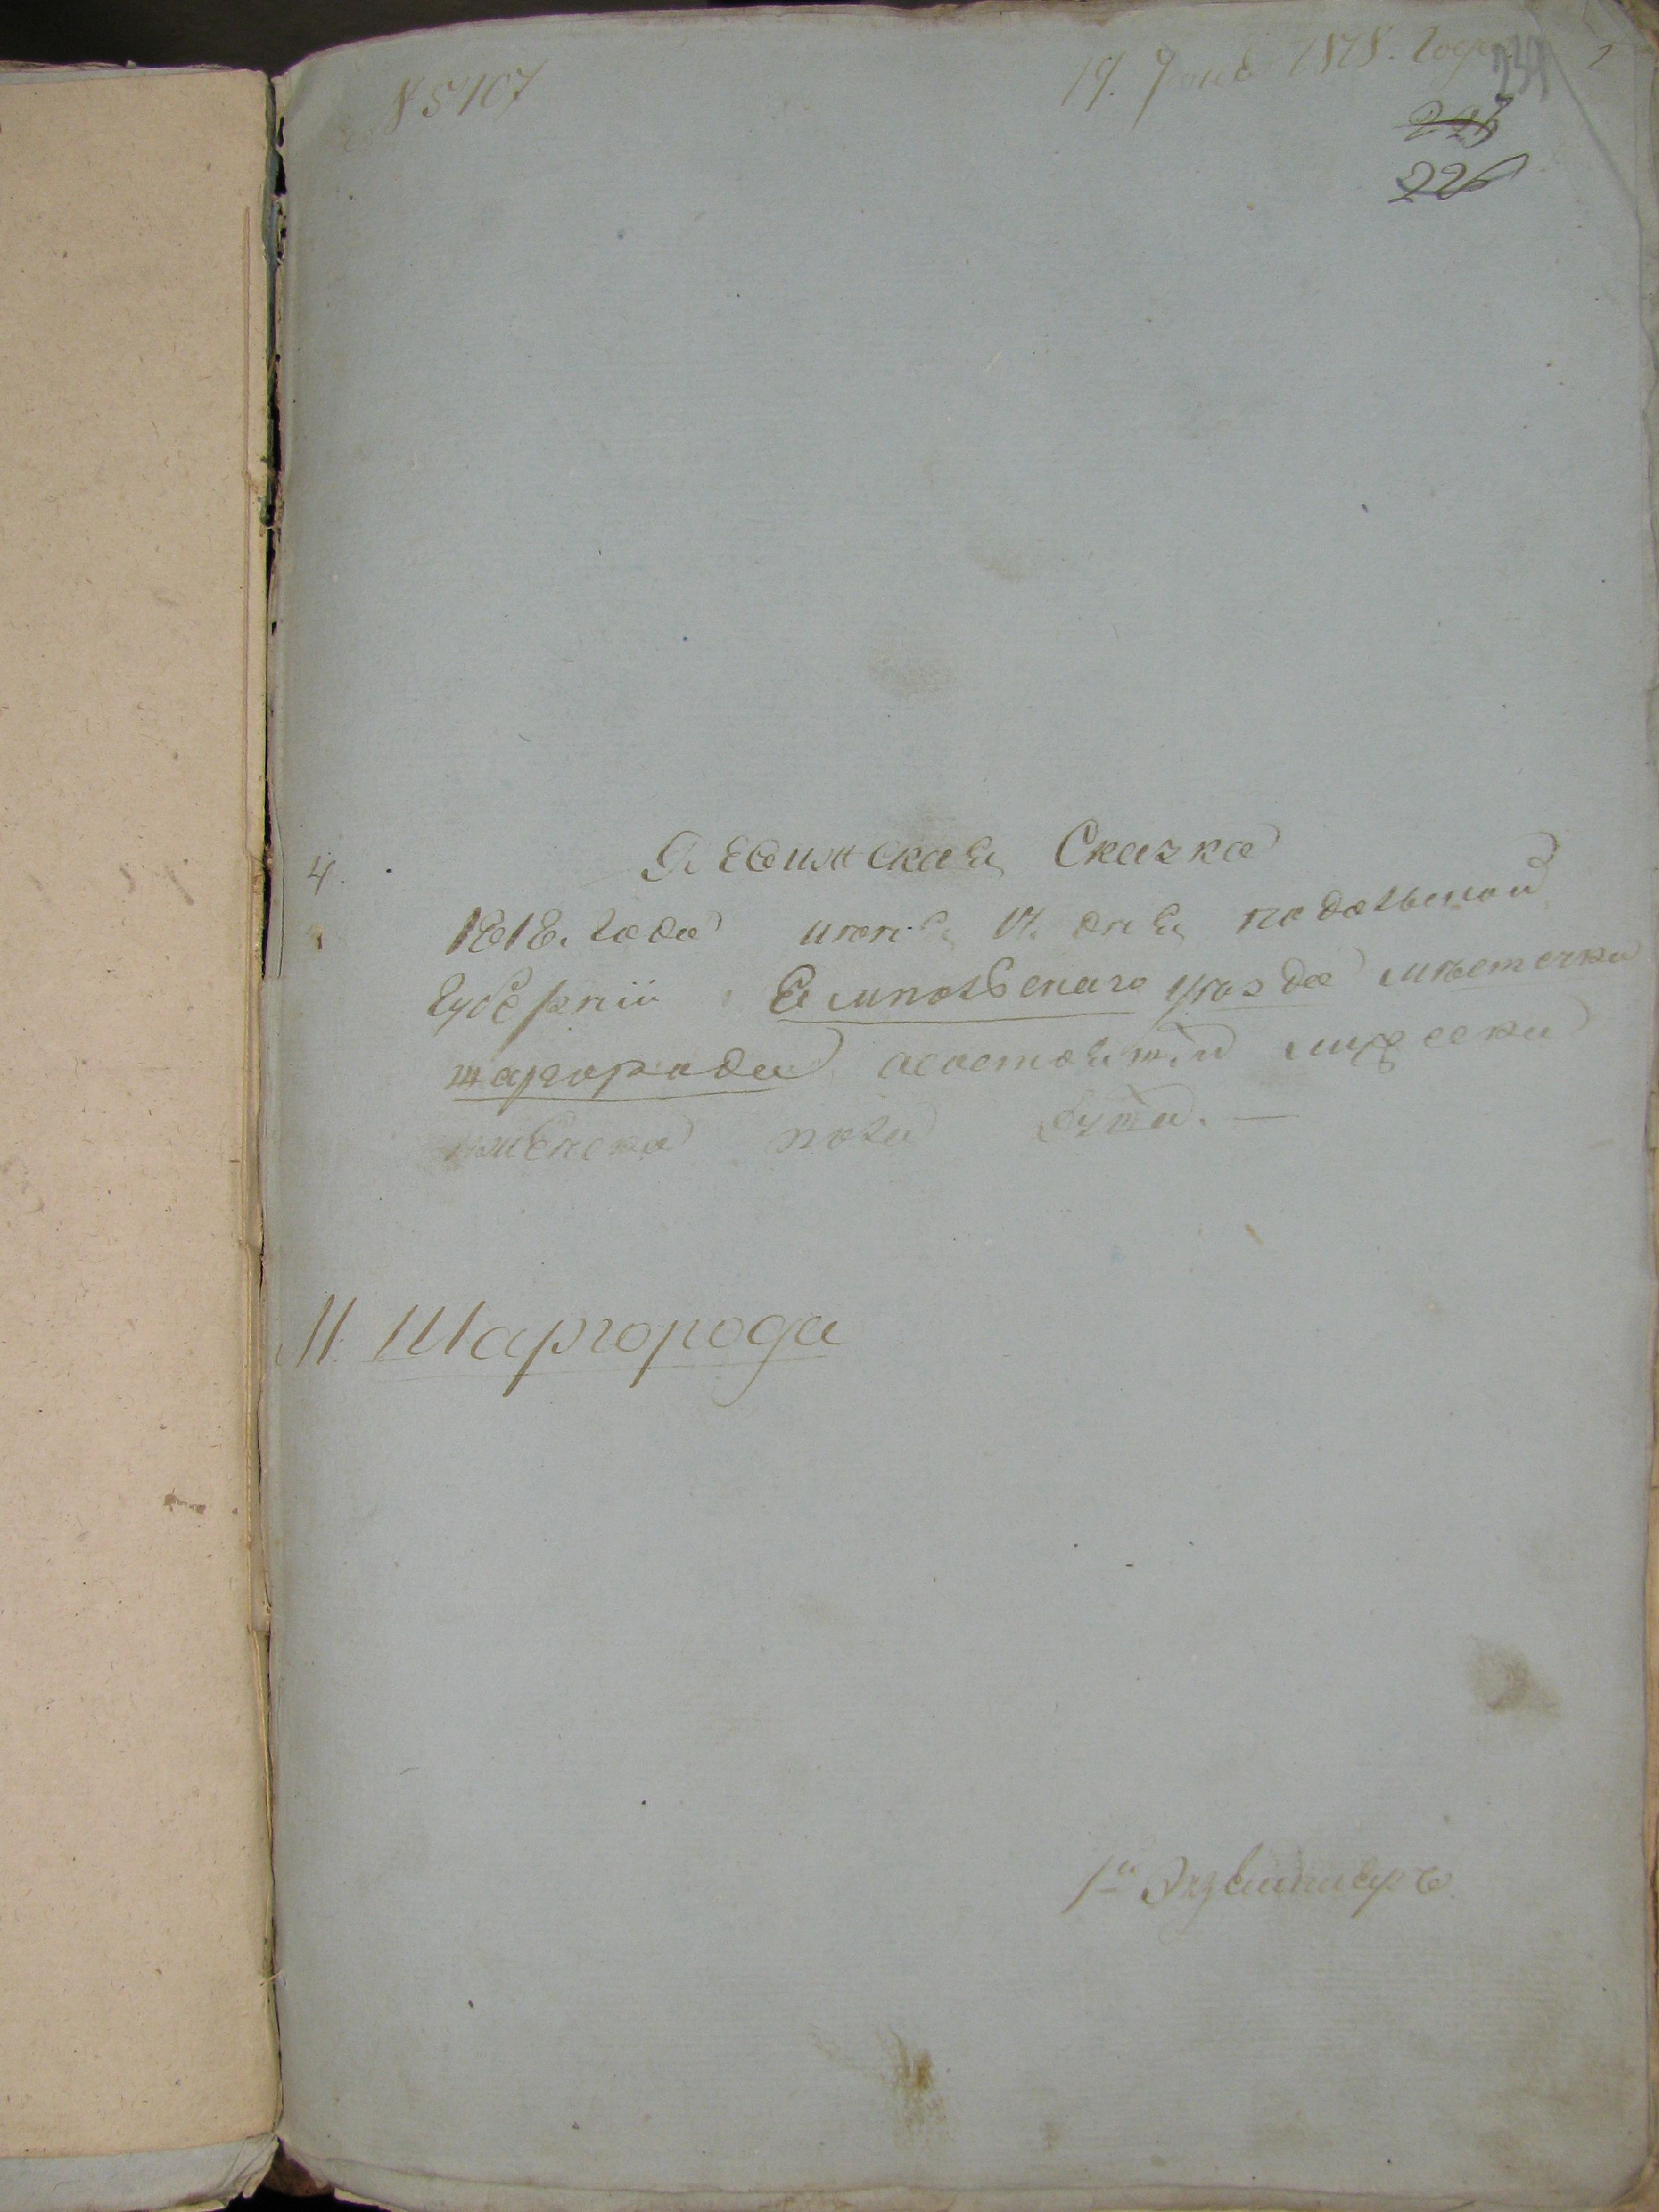 № 5107
19. Июня 1818. Года
234
227
226
4.
Ревижская Сказка
1818. года июня 17. дня подольской
Губернии Ямпольского уѣзда мѣстечка
шаргорода состоящей мужеска
женска пола душа. —
М. Шаргорода
1й Экземпляръ